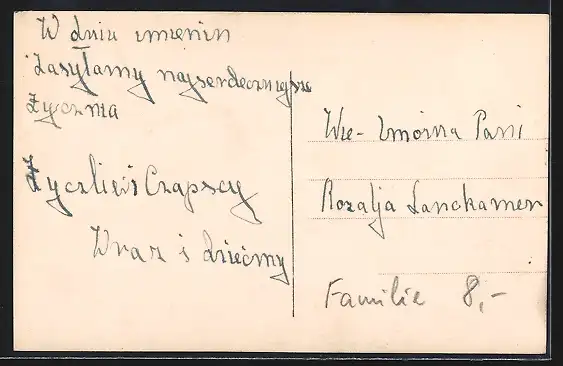 W dniu imienin
Zasyłamy najserdeczniejsze
Życznia
Życzliwi Czapscy
Wraz i dziećmy
Wie-lmożna Pani
Rozalja Lanckamer
Familie 8,-